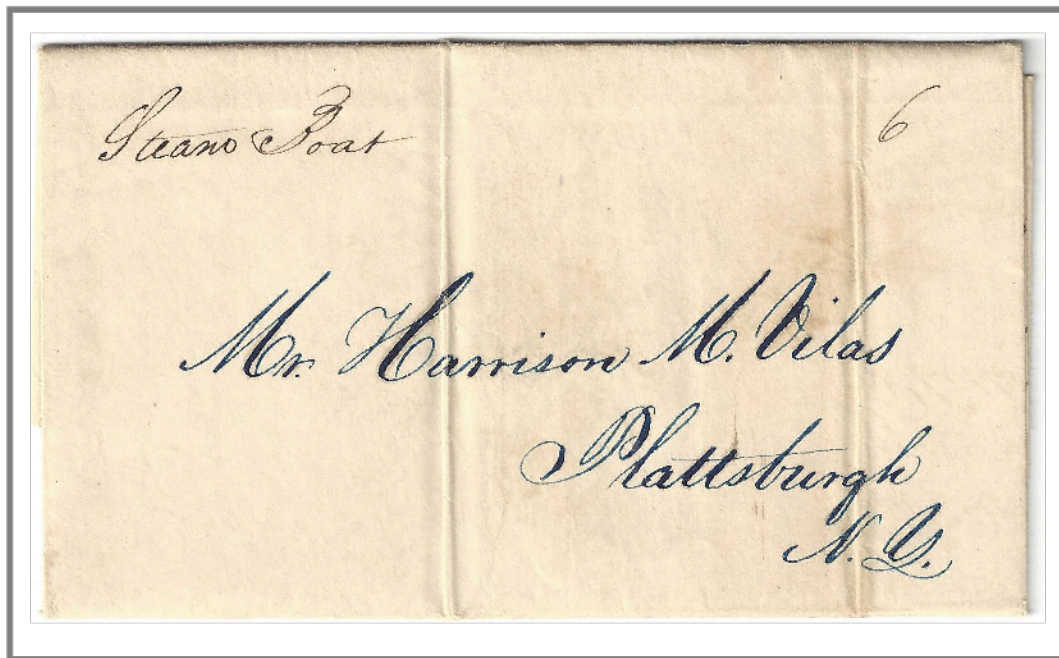 Steam Boat
6
Mr. Harrison M. Vilas
Plattsburgh
N. Y.